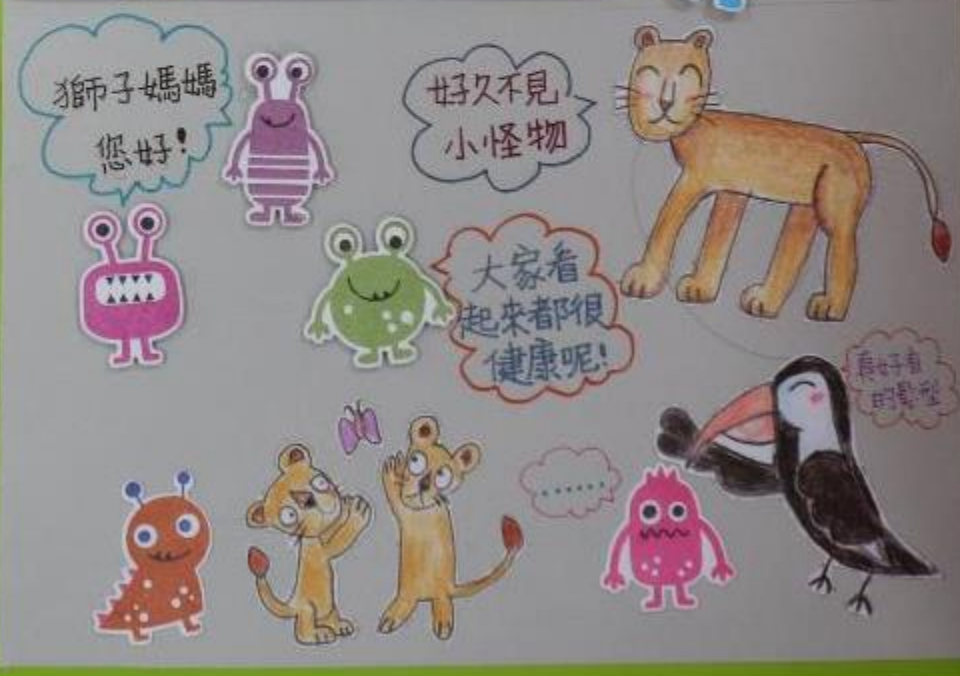 獅子媽媽
您好!
好久不見
小怪物
大家看
起來都很
健康呢!
真好看
的髮型
......